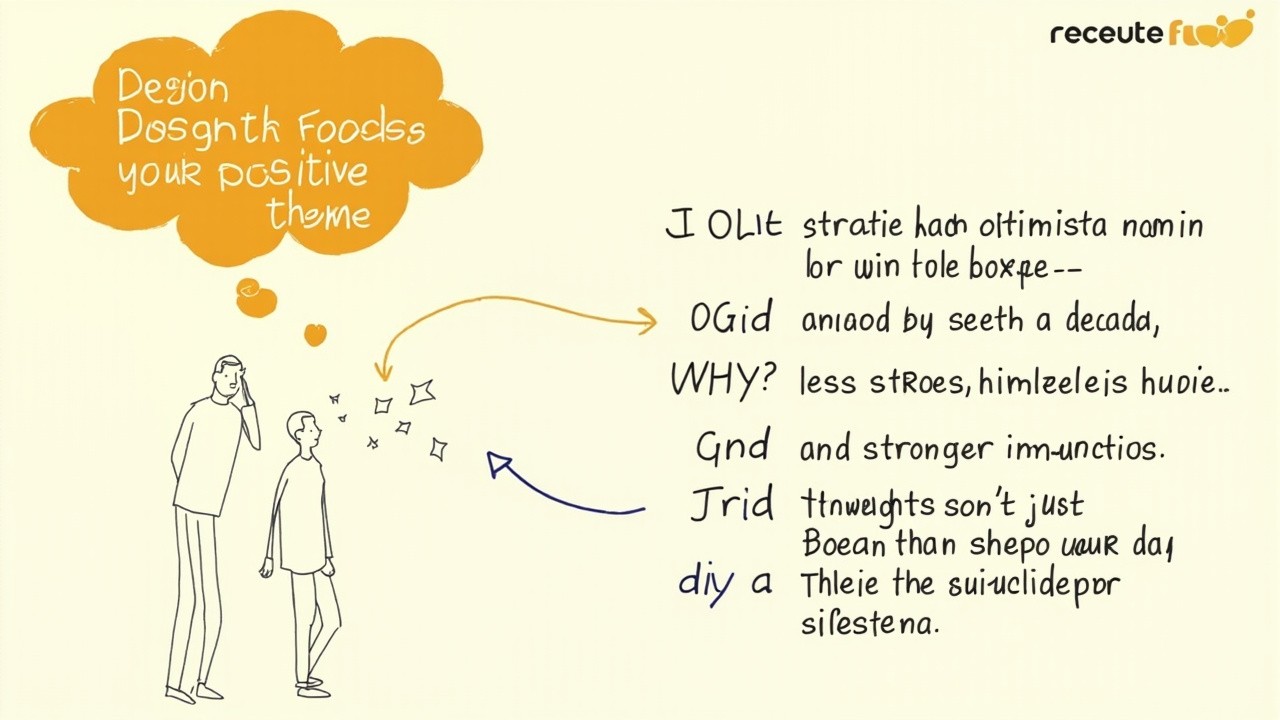 receute
Degion
Dosgnth Foodss
youk positive
theme
I OLIt stratie hach oltimista nomin
lor win tole boxpe--
OGid aniaod by seeth a decada,
WHY? less stRoes, himlzelejs huoie..
Gnd and stronger imm-unctios.
Jrid son't just
Boean than shepo uouR day
diy a Thleie the
silestena.